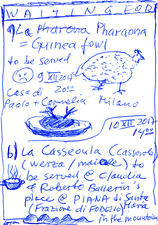 WAITING FOR
a) La Pharaona Pharaona
= Guinea fowl
to be served
9 XII 2017
Casa di
Paolo + Cornelia Milano
10 XII 2017
14 00
b) La Casseoula (Cassoeula)
to
be served @ Claudia
& Roberto Ballerin's
place @ PIANA di Santa
(Frazione di FOBELLO)
in the mountains